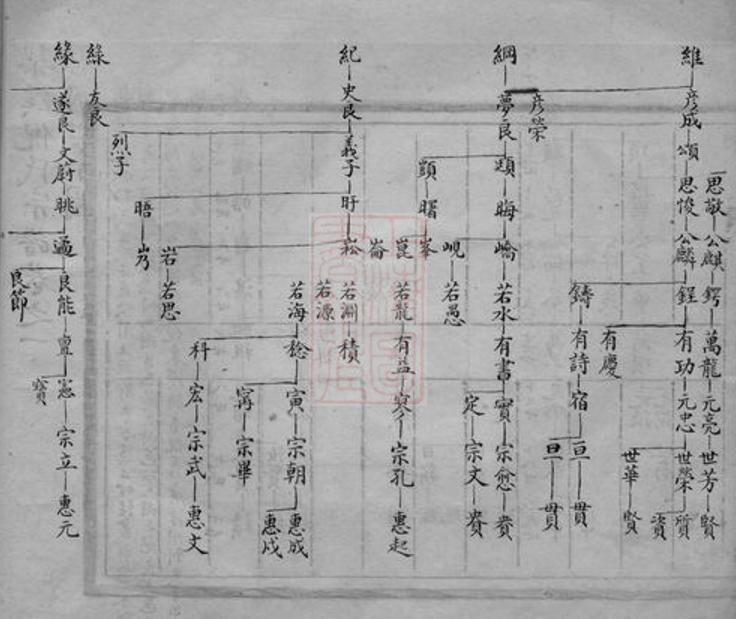 思敬公麒鍔萬龍元亮世芳賢
維彦成頌思悛公麟鋥有功元忠世榮質
資
有慶
世華賢
鑄有詩宿亘貫
亘貫
彦榮
綱夢良頊晦嶠若水有書實宗愈賁
定宗文賁
顗曙峯
峴若愚
崑若龍有益寥宗孔惠起
崙
紀史良義子旴崧若淵積
若源
若海稔寅宗朝惠成
惠戍
甯宗畢
科宏宗武惠文
岩若思
晤
烈子
綠友良
緣遂良文蔚眺適良能亶憲宗立惠元
良節